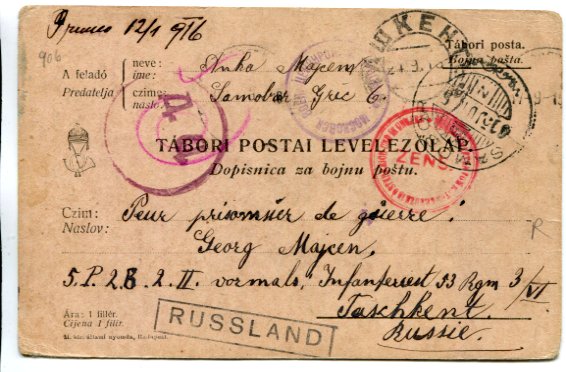 12/1 916
906
Tábori posta.
Bojna pošta.
A feladó neve: Anka Majcen
Predatelja ime:
czíme: Samobor Grec 6
naslov:
TÁBORI POSTAI LEVELEZŐLAP.
Dopisnica za bojnu poštu.
TAŠKENT
ZENS
SAMOBOR
Czim: Pour prisonnier de guerre:
Naslov: Georg Majcen,
5. P. 2B. 2. II. vormals, Infanteriest 53 Rgm 3/VI
Taschkent.
Russie.
R
Ára: 1 fillér.
Cijena 1 filir.
RUSSLAND
M. kir. állami nyomda, Budapest.